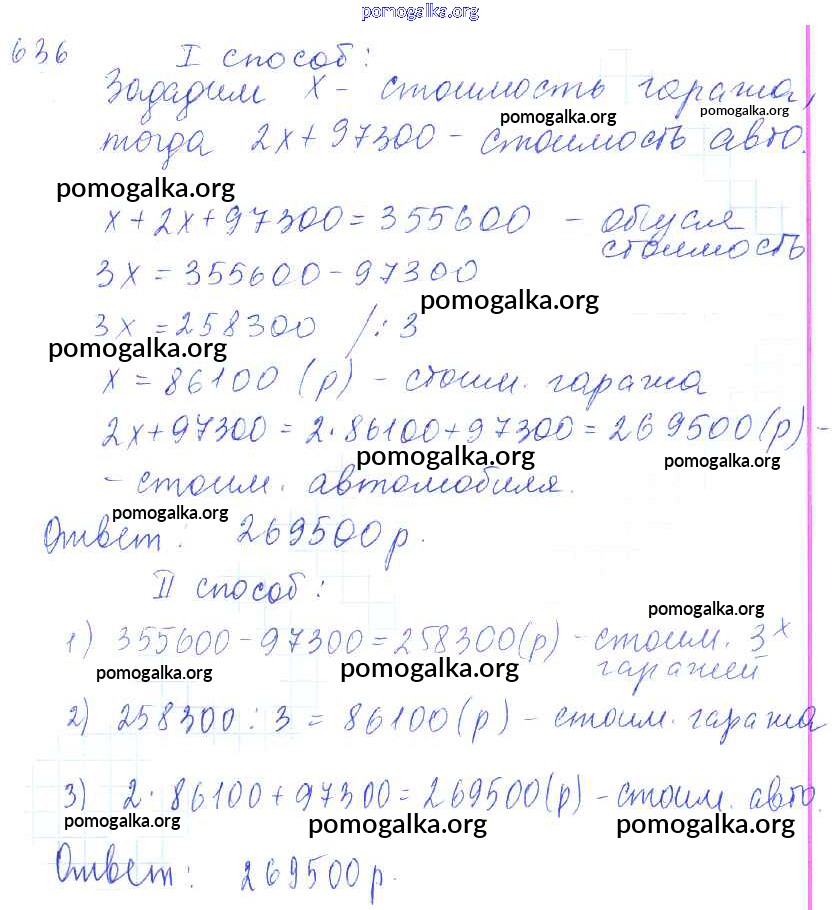 pomogalka.org
636 I способ:
Зададим x - стоимость гаража,
pomogalka.org pomogalka.org
тогда 2x+97300 - стоимость авто.
pomogalka.org
x+2x+97300=355600 - общая
стоимость
3x=355600-97300
pomogalka.org
3x=258300 /:3
pomogalka.org
x=86100 (р) - стоим. гаража
2x+97300=2·86100+97300=269500(р) -
pomogalka.org pomogalka.org
- стоим. автомобиля.
pomogalka.org
Ответ: 269500 р.
II способ:
pomogalka.org
1) 355600-97300=258300(р) - стоим. 3х
гаражей
pomogalka.org pomogalka.org
2) 258300:3=86100(р) - стоим. гаража
3) 2·86100+97300=269500(р) - стоим. авто.
pomogalka.org pomogalka.org pomogalka.org
Ответ: 269500 р.